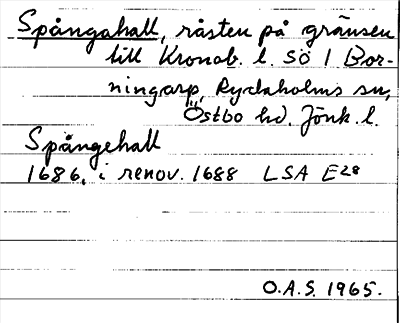 Spångahall, råsten på gränsen
till Kronob. l. SÖ l Bor-
ningarp, Rydaholms sn,
Östbo hd. Jönk. l.
Spångehall
1686, i renov. 1688 LSA E28
O.A.S. 1965.